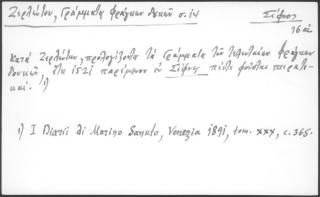 Ζερλέντου, Γράμματα Φράγκων Δουκών σ. 14
Σίφνος
16 αἰ.
Κατά Ζερλέντην, προλογίζοντα τά Γράμματα τῶν τελευταίων Φράγκων
Δουκῶν, ἔτει 1521 παρέμενον ἐν Σίφνῳ πέντε φοῦσται πειρατι-
καί. 1)
1) I Diarii di Marino Sanuto, Venezia 1891, tom. XXX, c. 365.